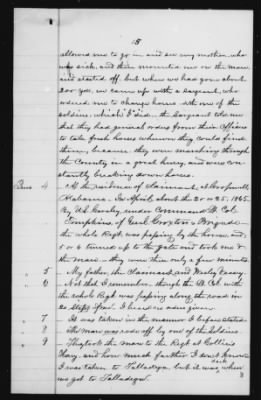 18
allowed me to go in and see my mother, who
was sick, and then mounted me on the mare
and started off, but when we had gone about
200 yds, we came up with a sargeant, who
ordered me to change horses with one of the
soldiers, which I did. the Sargeant told me
that they had general orders from their Officers
to take fresh horses wherever they could find
them, because they were marching through
the Country in a great hurry, and were con-
stantly breaking down horses.
4 At the residence of Claimant, at
Alabama. In April, about the 20 or 25, 1865.
By US Cavalry, under Command of Col.
Tompkins, of Genl Croxton's Brigade
the whole Regt was passing by the house, and
5 or 6 turned up to the gate and took me &
the mare — they were there only a few minutes.
5 My father, the Claimant, and Wesley
6 Not that I remember, though the Lt. Col. with
the whole Regt was passing along the road in
20 steps from. I heard no orders given.
7 It was taken in the manner I before stated
8 The mare was rode off by one of the Soldiers.
9 They took the mare to the Regt at Collins
and how much farther I don't know
I was taken to Talladega, but it was dark when
we got to Talladega.